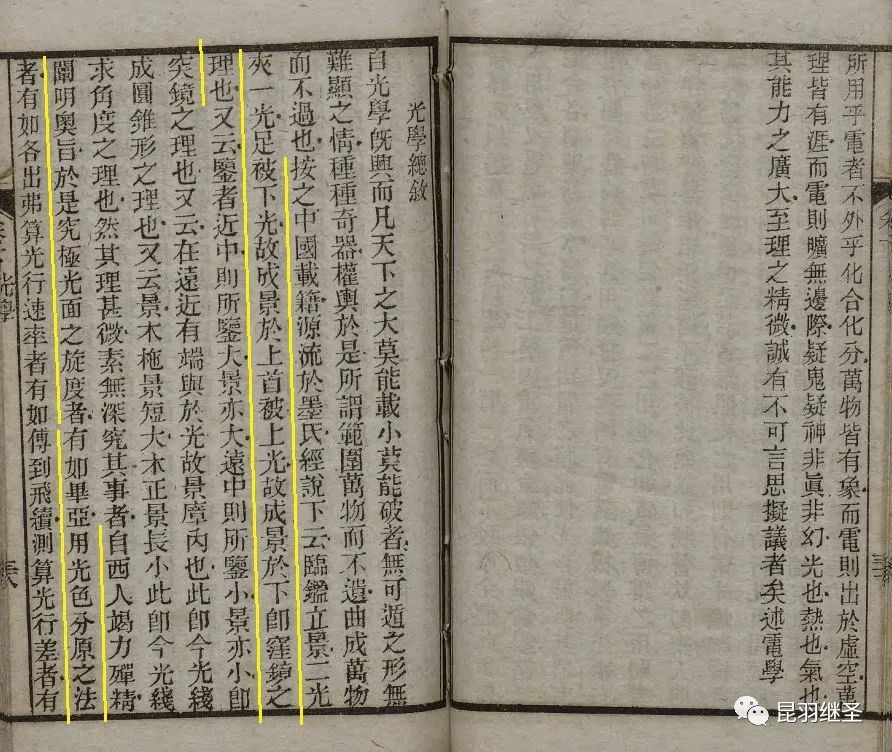 所用乎電者不外乎化合化分萬物皆有象而電則出於虛空萬
理皆有涯而電則曠無邊際疑鬼疑神非眞非幻光也熱也氣也
其能力之廣大至理之精微誠有不可言思擬議者矣述電學
光學總敘
自光學旣興而凡天下之大莫能載小莫能破者無可遁之形無
難顯之情種種奇器權輿於是所謂範圍萬物而不遺曲成萬物
而不過也按之中國載籍源流於墨氏經說下云臨鑑立景二光
夾一光足被下光故成景於上首被上光故成景於下卽窪鏡之
理也又云鑒者近中則所鑒大景亦大遠中則所鑒小景亦小卽
突鏡之理也又云在遠近有端與於光故景㢓內也此卽今光綫
成圓錐形之理也又云景木柂景短大木正景長小此卽今光綫
求角度之理也然其理甚微素無深究其事者自西人竭力殫精
闡明奧旨於是究極光面之旋度者有如畢亞用光色分原之法
者有如各出弗算光行速率者有如傅到飛續測算光行差者有
光學
昆羽继圣